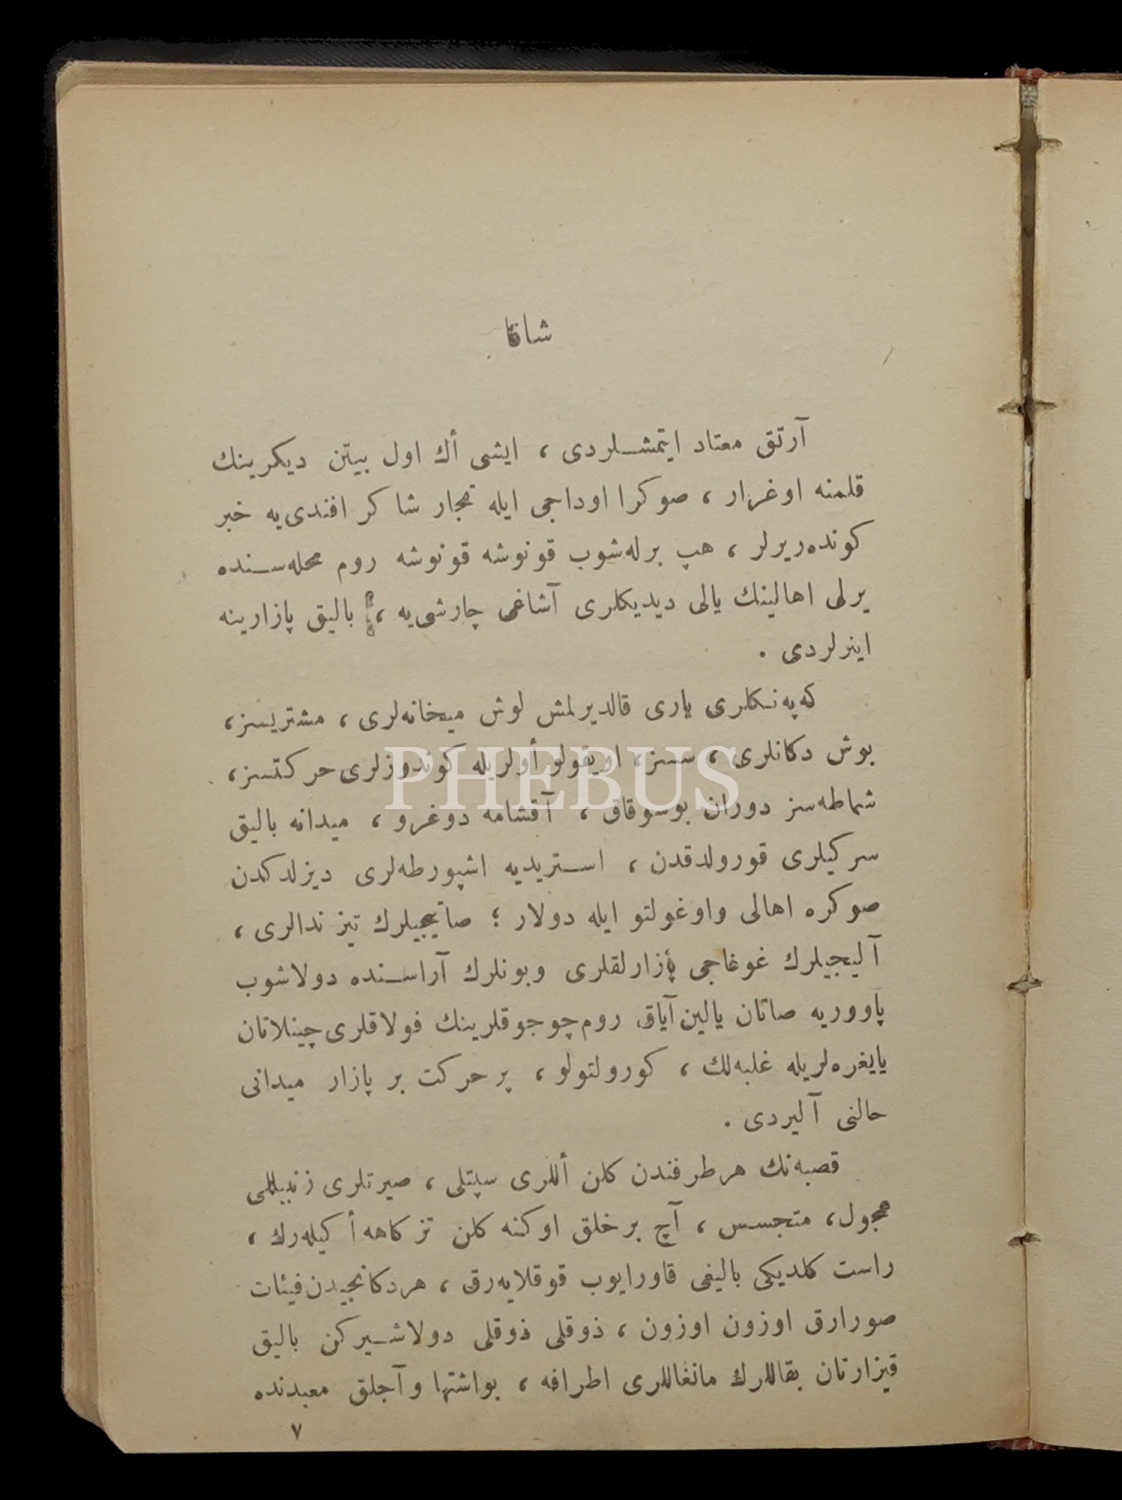 شاقا
آرتق معتاد ايتمشلردى ، ايشى أك اول بيتن ديكرينك
قلمنه اوغرار ، صوكرا اوداجى ايله نجار شاكر افندى‌يه خبر
كونده‌ريرلر ، هپ برله‌شوب قونوشه قونوشه روم محله‌سنده
يرلى اهالينك يالى ديديكلرى آشاغى چارشى‌يه ، باليق پازارينه
اينرلردى .
كه‌په‌نكلرى يارى قالديرلمش لوش ميخانه‌لرى ، مشتريسز ،
بوش دكانلرى ، سسز ، اويقولو أولريله كوندوزلرى حركتسز ،
شماطه‌سز دوران بو سوقاق ، آقشامه دوغرو ، ميدانه باليق
سركيلرى قورولدقدن ، استريديه اشپورطه‌لرى ديزلدكدن
صوكره اهالى واوغولتو ايله دولار ؛ صاتيجيلرك تيز ندالرى ،
آليجيلرك غوغاجى پازارلقلرى وبونلرك آراسنده دولاشوب
پاووريه صاتان يالين آياق روم چوجوقلرينك قولاقلرى چينلاتان
يايغره‌لريله غلبه‌لك ، كورولتولو ، پر حركت بر پازار ميدانى
حالنى آليردى .
قصبه‌نك هر طرفندن كلن أللرى سپتلى ، صيرتلرى زنبيللى
عجول ، متجسس ، آچ بر خلق اوكنه كلن تزكاهه أكيله‌رك ،
راست كلديكى باليغى قاورايوب قوقلايه‌رق ، هر دكانجيدن فيئات
صورارق اوزون اوزون ، ذوقلى ذوقلى دولاشيركن باليق
قيزارتان بقاللرك مانغاللرى اطرافه ، بو اشتها و آجلق معبدنده
٧
PHEBUS